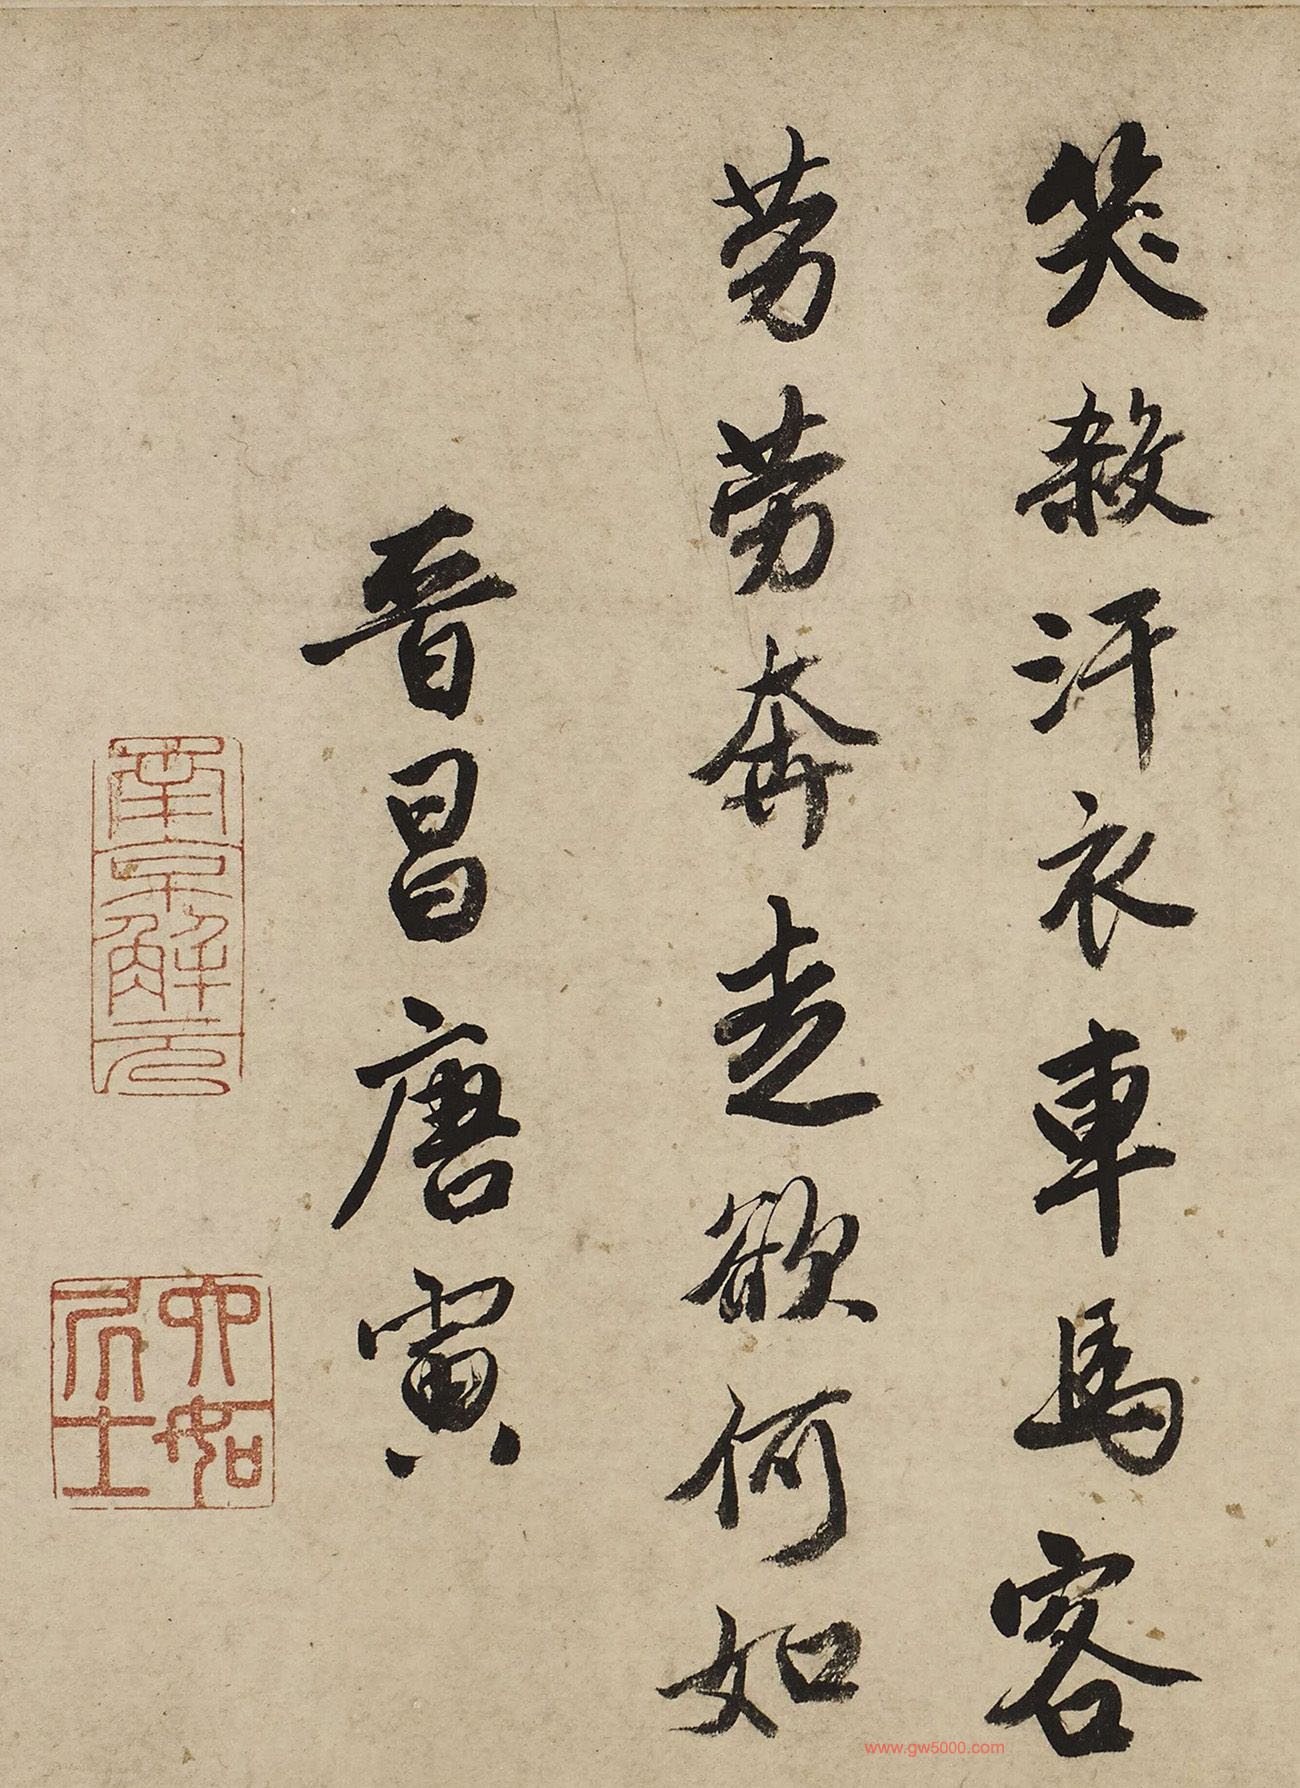 笑殺汗衣車馬客
劳劳奔走欲何如
晉昌唐寅
南京解元
六如居士
www.gw5000.com